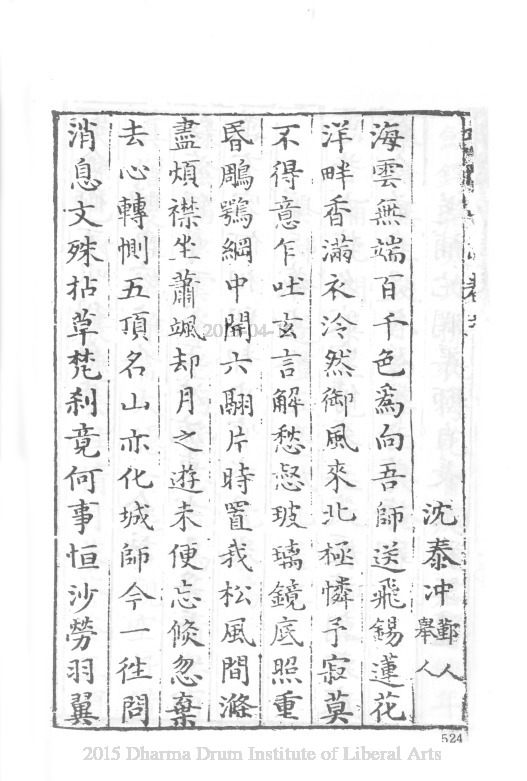 沈泰冲鄞人舉人
海雲無端百千色爲向吾師送飛錫蓮花
洋畔香滿衣冷然御風來北極憐予寂莫
不得意乍吐玄言解愁惄玻璃鏡底照重
昬鵰鶚網中開六翮片時置我松風間滌
盡煩襟坐蕭颯却月之遊未便忘倐忽棄
去心轉惻五頂名山亦化城師今一徃問
消息文殊拈草梵刹竟何事恒沙勞羽翼
524
2015 Dharma Drum Institute of Liberal Arts